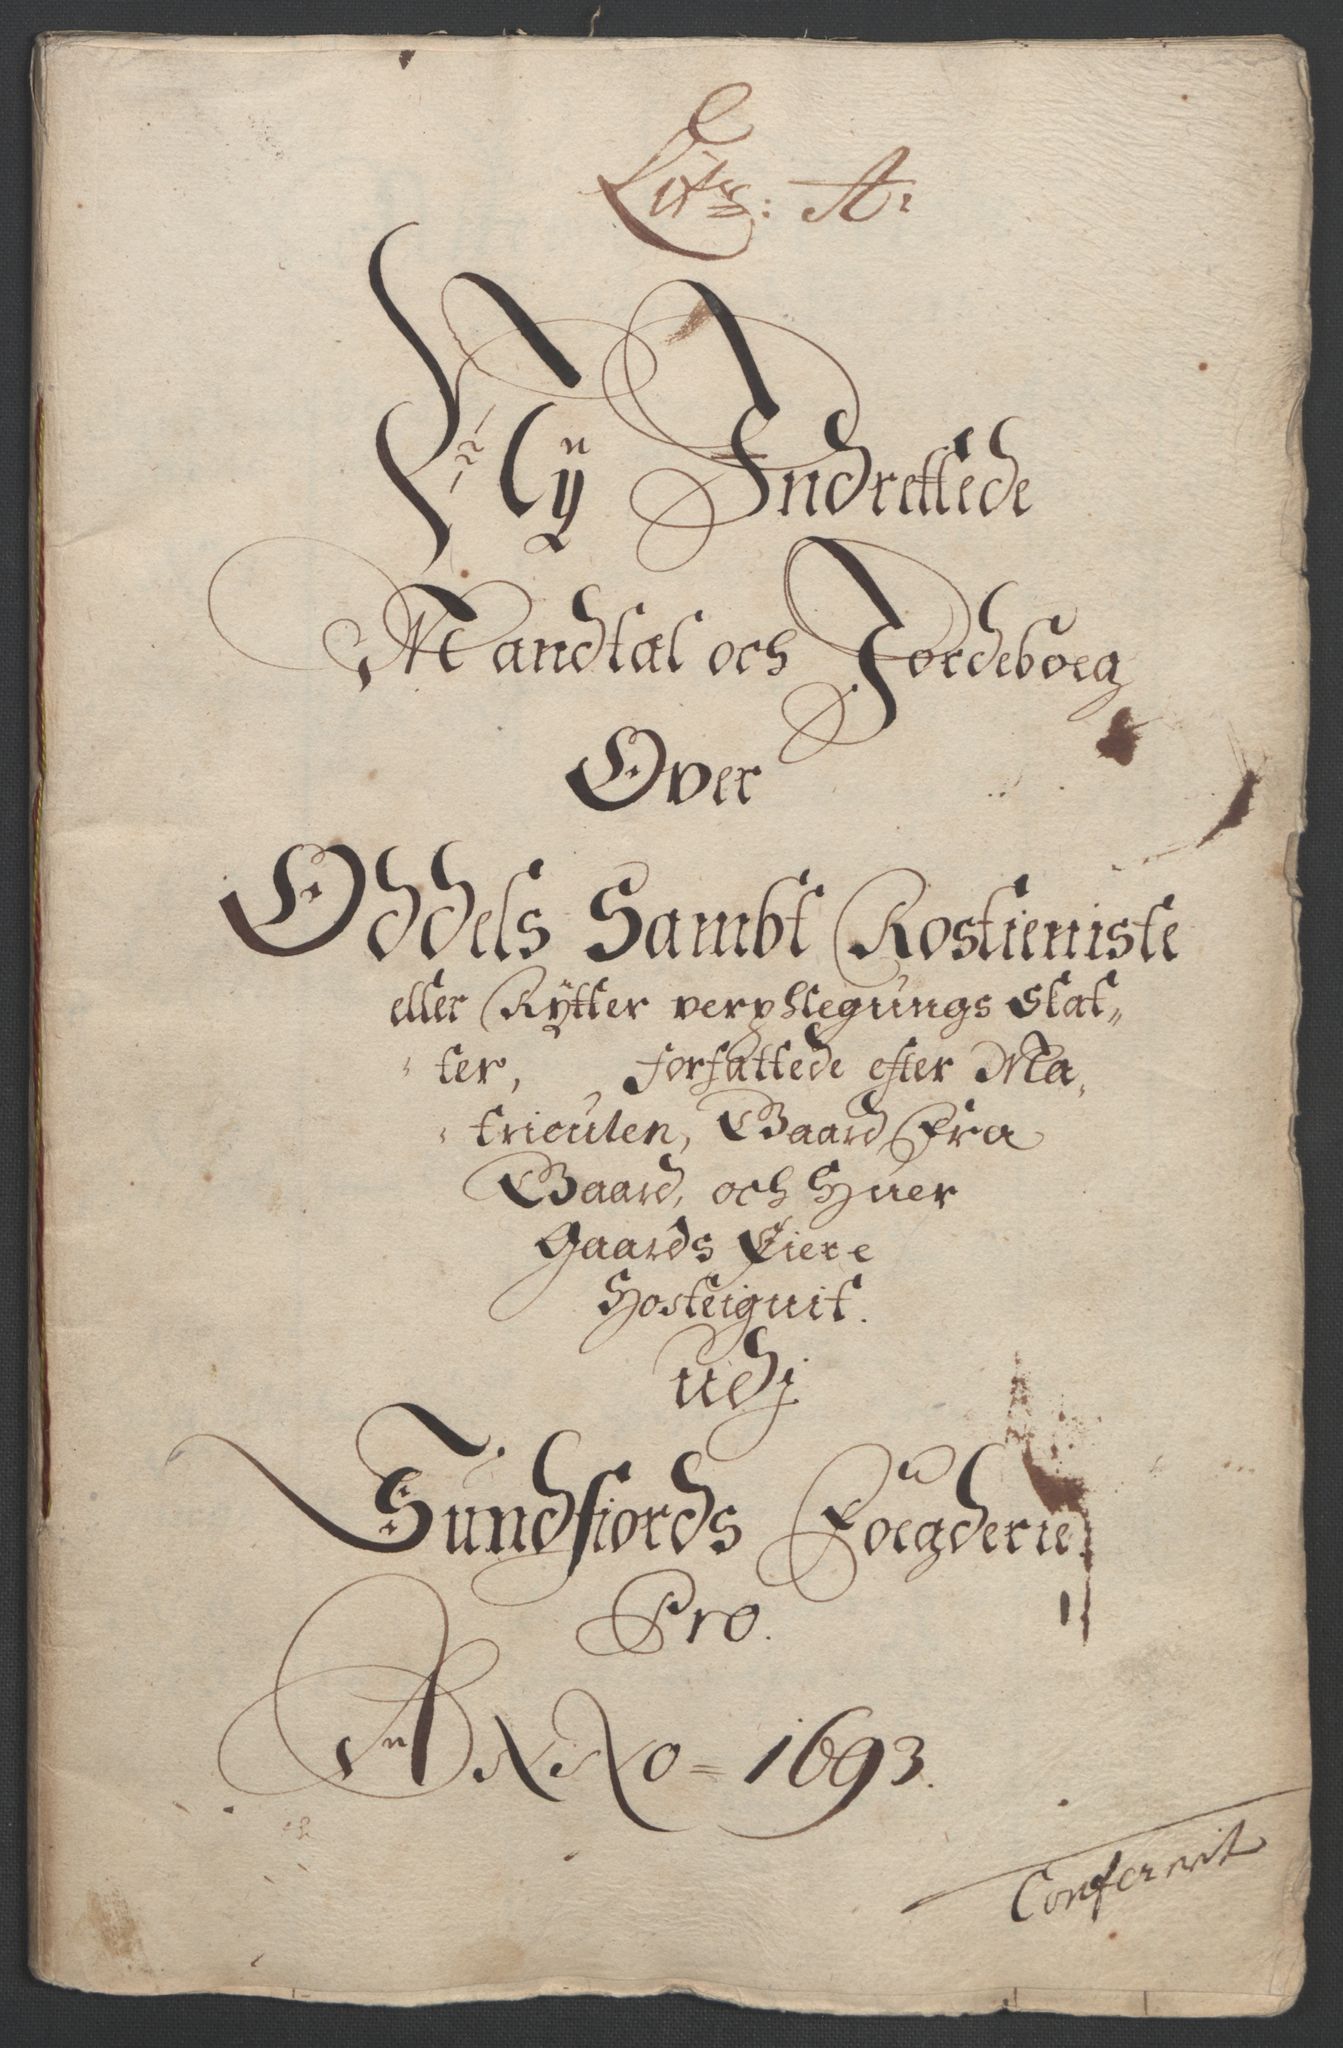 Litr: A:
Nÿ Indrettede
Mandtal och Jordeboeg
Over
Oddels Sambt Rostieniste
eller Rÿtter verphlegungs Skat-
ter, forfattede efter Ma-
triculen, Gaard fra
Gaard, och Huer
Gaards Eiere
Hosteignit.
udj
Sundfiords Foegderie
Pro.
ANNo = 1693.
Confererit